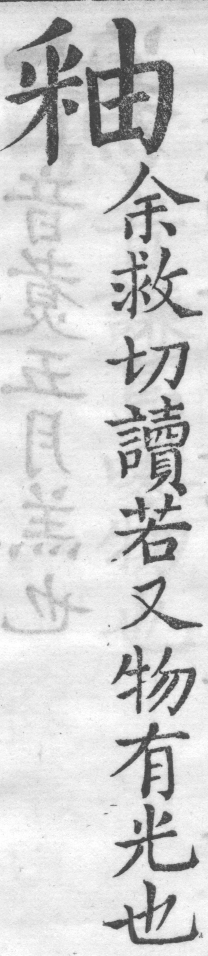 釉余救切讀若又物有光也